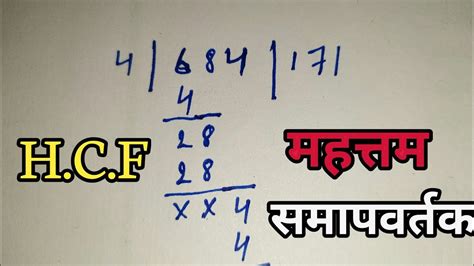 4 | 684 | 171
4
28
28
x x 4
4
H.C.F
महत्तम
समापवर्तक